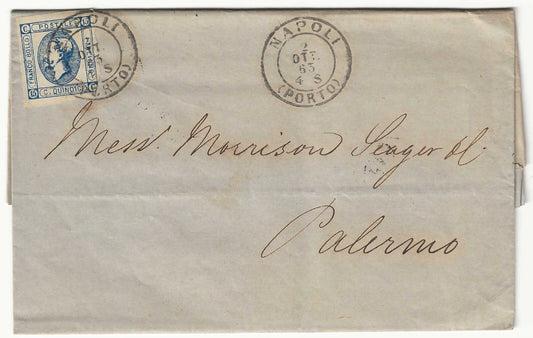 FRANCO BOLLO
POSTALE
C. QUINDICI
NAPOLI
(PORTO)
NAPOLI
2
OTT.
63
4 S
(PORTO)
Messrs. Morrison Seager &
Palermo